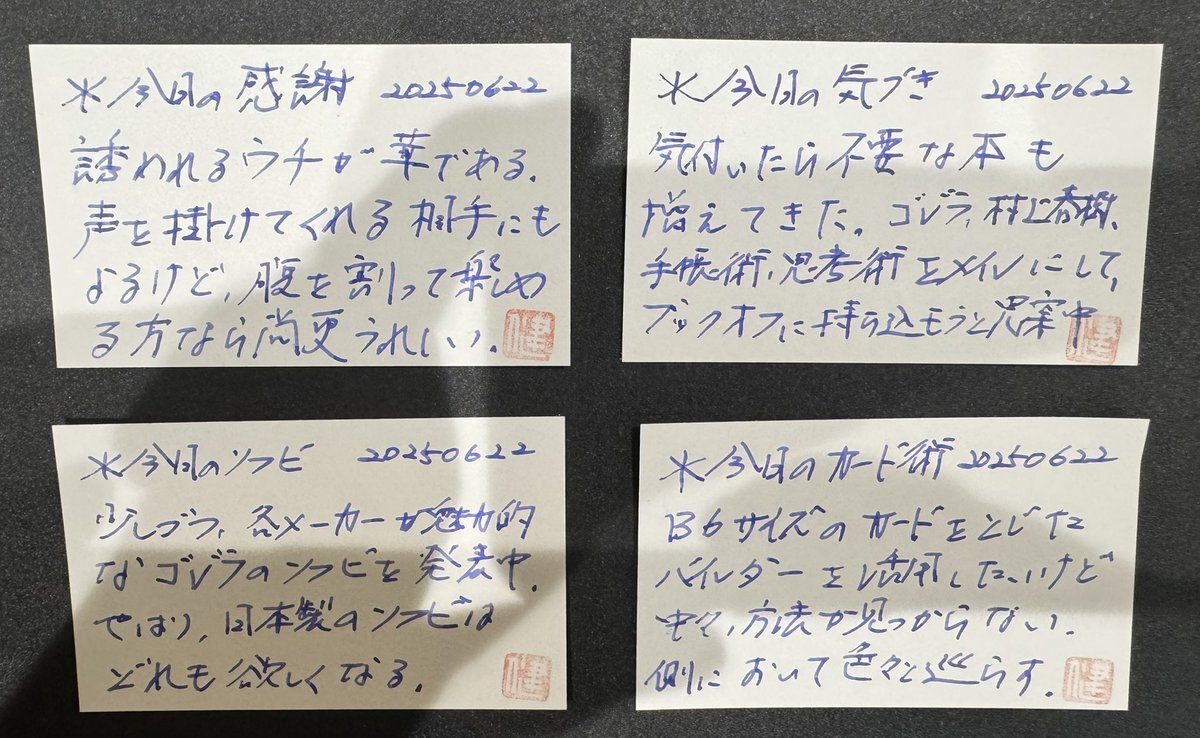 *今日の感謝 20250622
誘われるウチが華である。
声を掛けてくれる相手にも
よるけど、腹を割って楽しめ
る方なら尚更うれしい。
健
*今日の気づき 20250622
気付いたら不要な本も
増えてきた。ゴジラ、村上春樹、
手帳術、思考術をメインにして、
ブックオフに持ち込もうと思案中
健
*今日のソフビ 20250622
各メーカーが魅力的
なゴジラのソフビを発表中。
やはり、日本製のソフビは
どれも欲しくなる。
健
*今日のカード術 20250622
B6サイズのカードをとじた
バインダーを活用したいけど
中々、方法が見つからない。
側において色々と巡らす。
健